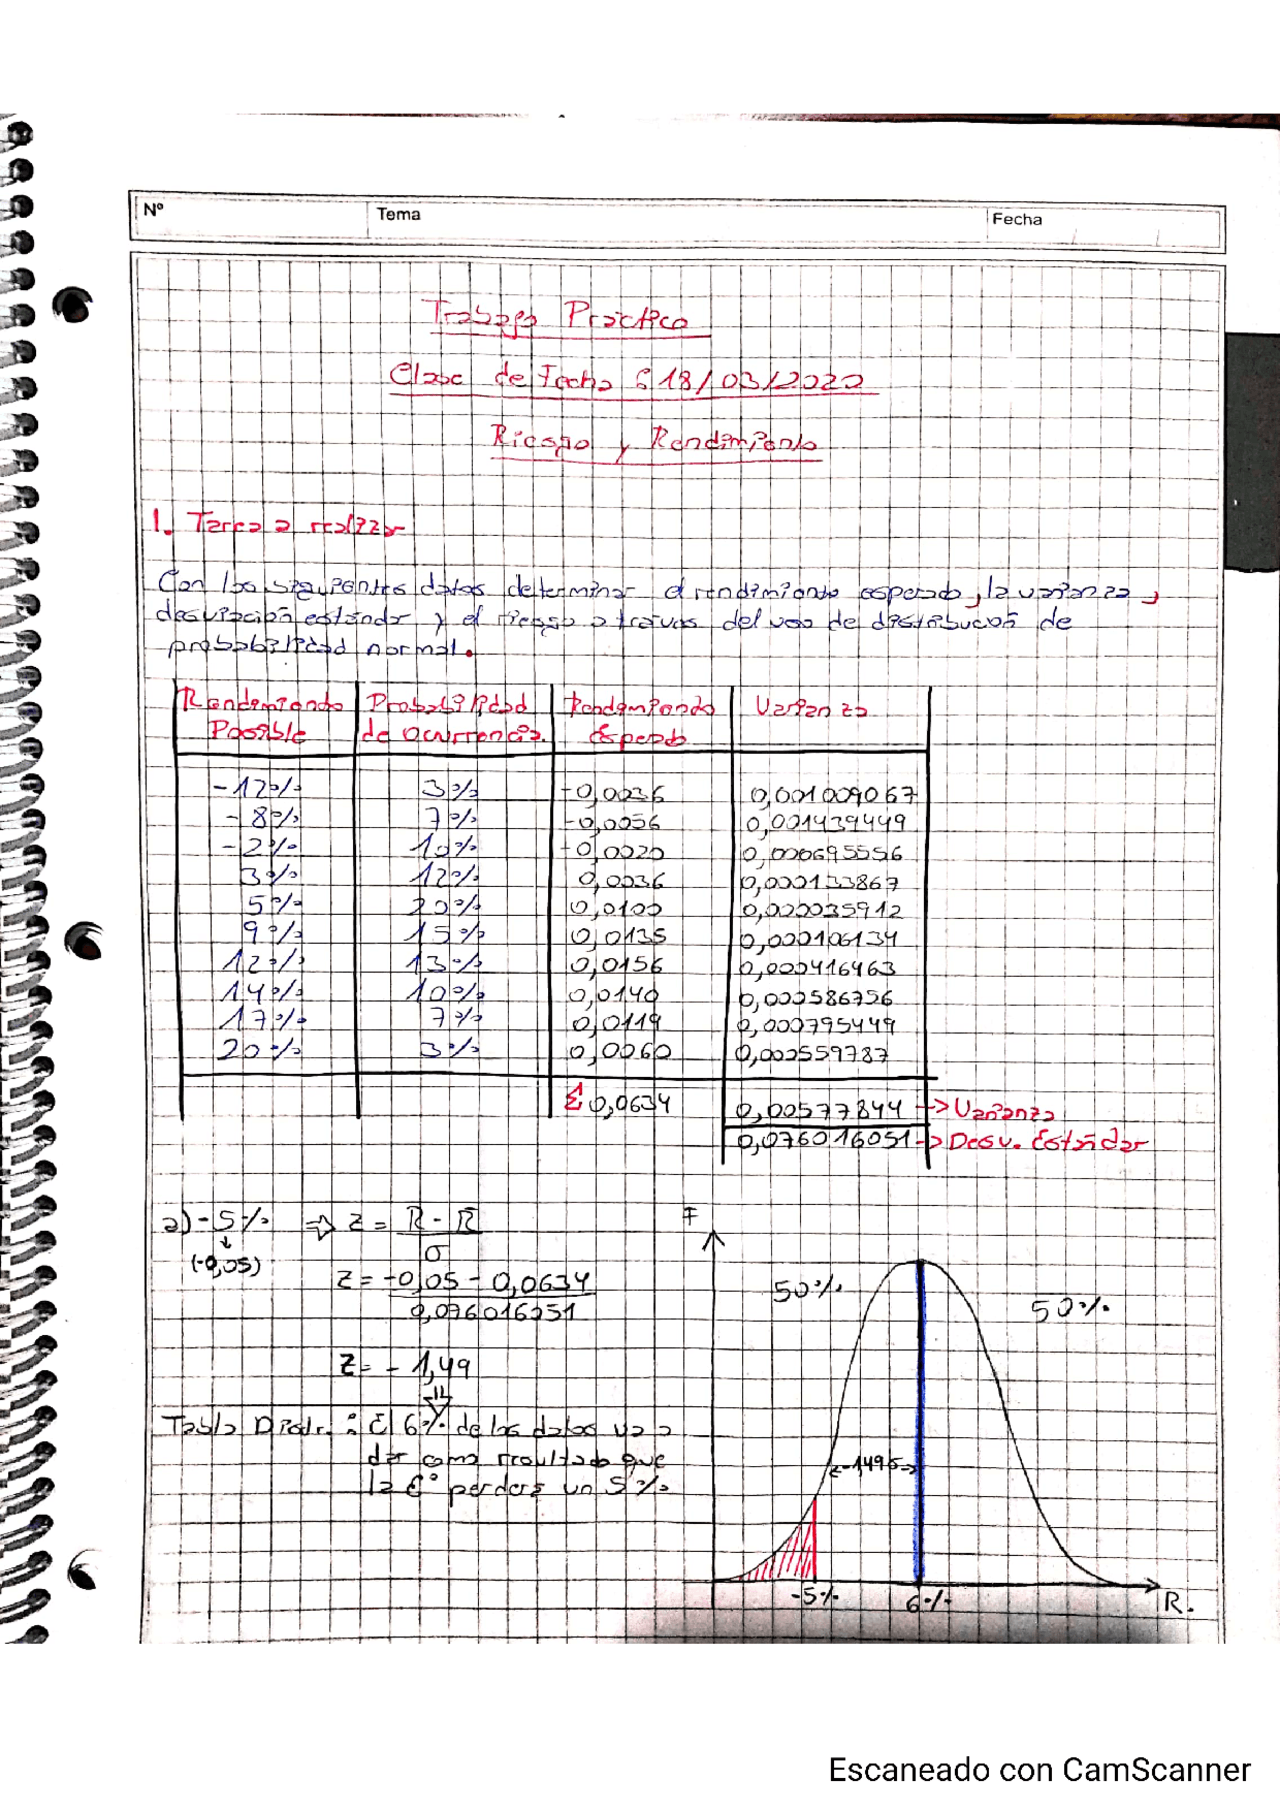 Nº Tema Fecha
Trabajo Práctico
Clase de Fecha: 18/03/2020
Riesgo y Rendimiento
1. Tarea a realizar
Con los siguientes datos determinar el rendimiento esperado, la varianza,
desviación estándar y el riesgo a través del uso de distribución de
probabilidad normal.
Rendimiento Probabilidad Rendimiento Varianza
Posible de ocurrencia. Esperado
-12% 3% -0,0036 0,001009067
-8% 7% -0,0056 0,001439449
-2% 10% -0,0020 0,000695556
3% 12% 0,0036 0,000133867
5% 20% 0,0100 0,000035912
9% 15% 0,0135 0,000106134
12% 13% 0,0156 0,000416463
14% 10% 0,0140 0,000586756
17% 7% 0,0119 0,000795449
20% 3% 0,0060 0,000559787
Σ 0,0634 0,00577844 -> Varianza
0,076016051 -> Desv. Estándar
a) -5% => Z = R - R̅
(-0,05) σ
Z = -0,05 - 0,0634
0,076016051
Z = -1,49
Tabla Distr.: El 6% de los datos va a
dar como resultado que
la Eº perdera un 5%
F
50% 50%
-1,49σ
-5% 6% R.
Escaneado con CamScanner